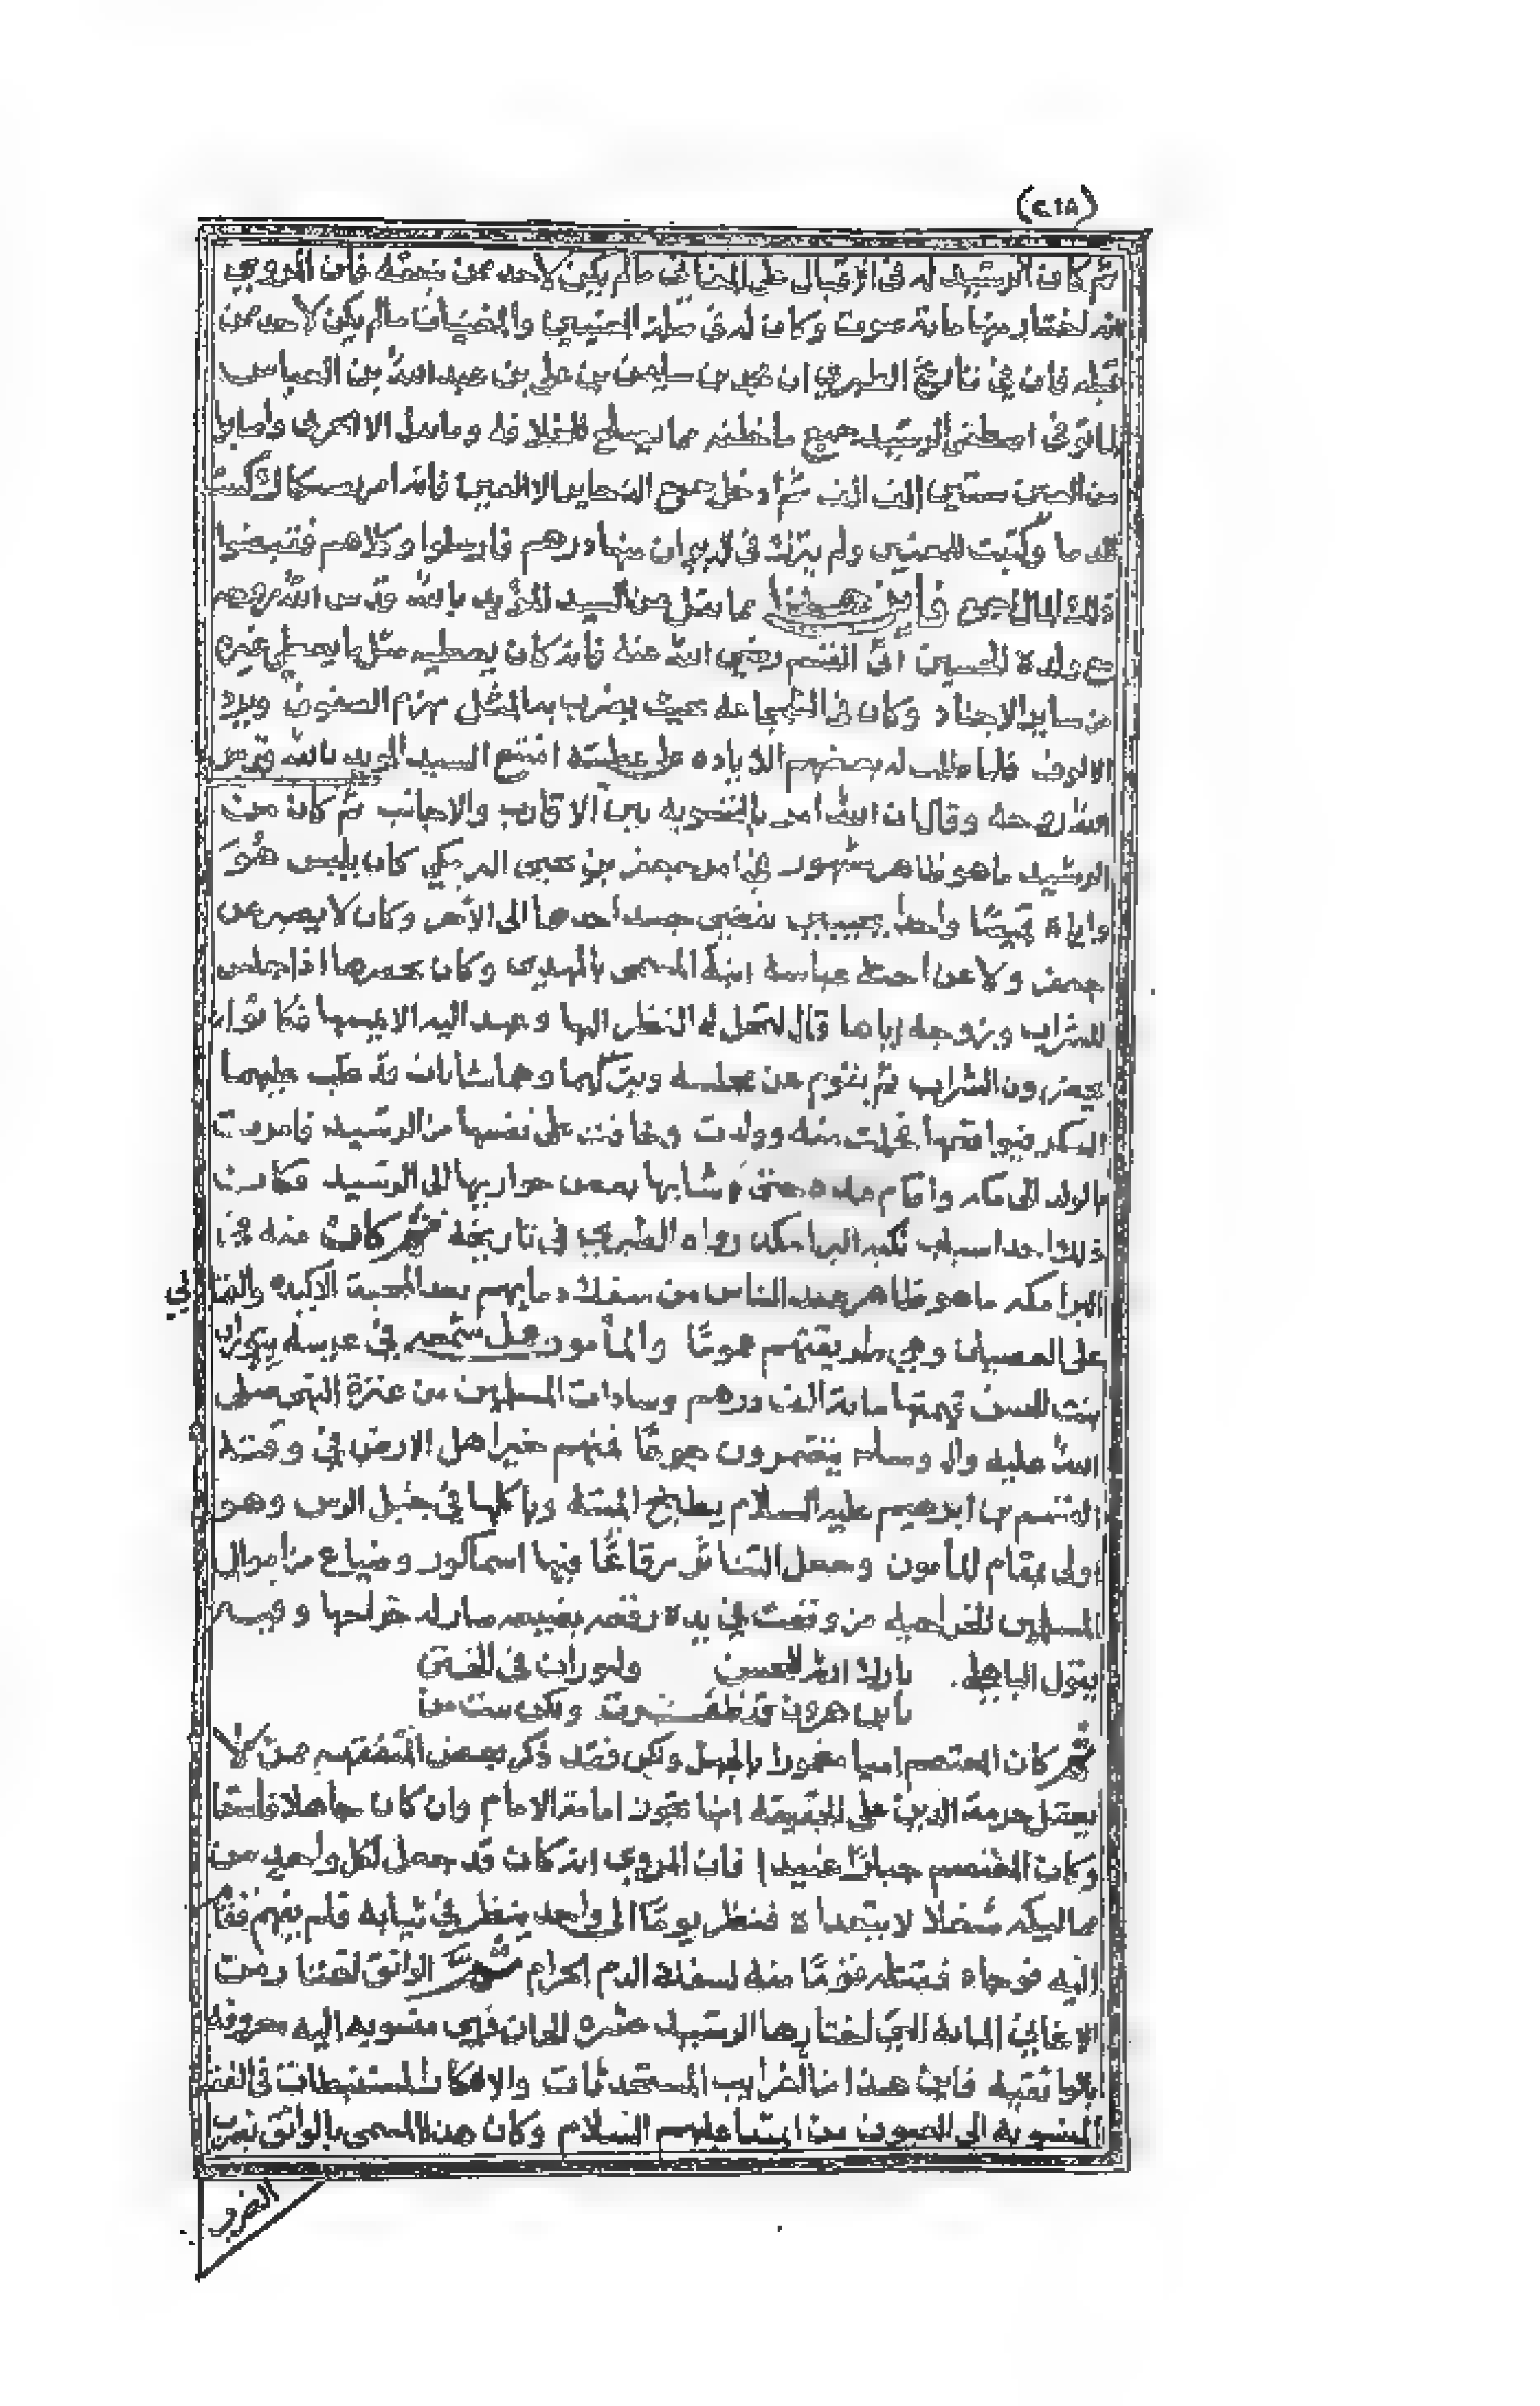 (٢١٨)
ثم كان الرشيد له في الاقبال على المغاني مالم يكن لاحد من قبله فان المروي
انه اختار منها مائة صوت وكان له في صلة المغنيين والمغنيات مالم يكن لاحد من
قبله فان في تاريخ الطبري ان محمد بن سليمن بن علي بن عبد الله بن العباس
لما توفي اصطفى الرشيد جميع ما خلفه مما يصلح للخلافة
من المعين ستين الف الف ثم ادخل جميع
للندما وكتبت للمغنين ولم يترك في الديوان منها درهم فارسلوا وكلاهم فقبضوا
ذلك المال اجمع فاين هذا مما نقل عن السيد المؤيد بالله قدس الله روحه
مع ولده الحسين ابي القسم رضي الله عنه فانه كان يعطيه مثل ما يعطي غيره
من ساير الاجناد وكان في الشجاعة بحيث يضرب به المثل يهزم الصفوف ويرد
الالوف فلما طلب له بعضهم الزيادة على عطيته امتنع السيد المويد بالله قدس
الله روحه وقال ان الله امر بالتسوية بين الاقارب والاجانب ثم كان من
الرشيد ما هو ظاهر مشهور في امر جعفر بن يحيى البرمكي كان يلبس هو
واياه قميصا واحدا بجيبين يفضي جسد احدهما الى الاخر وكان لا يصبر عن
جعفر ولا عن اخته عباسة ابنة المسمى بالمهدي وكان يحضرها اذا جلس
للشراب وزوجه اياها قال لتحل له النظر اليها وعهد اليه الا يمسها فكانوا
يحضرون الشراب ثم يقوم عن مجلسه ويتركهما وهما شابان قد غلب عليهما
السكر فيواقعها فحملت منه وولدت وخافت على نفسها من الرشيد فامرت
بالولد الى مكه واقام مده حتى وشا بها بعض جواريها الى الرشيد فكانت
ذلك احد اسباب نكبه البرامكه رواه الطبري في تاريخه ثم كان منه في
البرامكه ما هو ظاهر عند الناس من سفك دمايهم بعد المحبة الاكيده والتصافي
على العصيان وهي طريقتهم عموما والمأمون عمل شمعه في عرسه ببوران
بنت الحسن قيمتها مائة الف درهم وسادات المسلمين من عترة النبي صلى
الله عليه واله وسلم يتضورون جوعا فمنهم خير اهل الارض في وقته
القسم بن ابرهيم عليه السلام يطبخ الميتة وياكلها في جبل الرس وهو
اولى بمقام المأمون وجعل النثار رقاعا فيها اسما كور وضياع من اموال
المسلمين الخراجيه من وقعت في يده رقعه بضيعه صار له خراجها وفيه
يقول الباهلي بارك الله للحسن ولبوران في الختن
يابن هرون قد ظفرت ولكن ببنت من
ثم كان المعتصم اميا مغمورا بالجهل ولكن فقد ذكر بعض المتفقهه ممن لا
يعقل حرمة الدين على الحقيقة انها تجوز امامة الامام وان كان جاهلا
وكان المعتصم جبارا عنيدا فان المروي انه كان قد جعل لكل واحد من
مماليكه شغلا لا يتعداه فنظر يوما الى واحد ينظر في
اليه فوجاه فقتله هونا منه لسفك الدم الحرام ثم الواثق اختار من
الاغاني المائة التي اختارها الرشيد عشره الحان فهي منسوبة اليه معروفة
بالواثقية فاين هذا من الغرايب المستحدثات والافكار المستنبطات في الفقه
المنسوبه الى الصفوة من ابنائها عليهم السلام وكان هذا المسمى بالواثق يعرف
الضروب